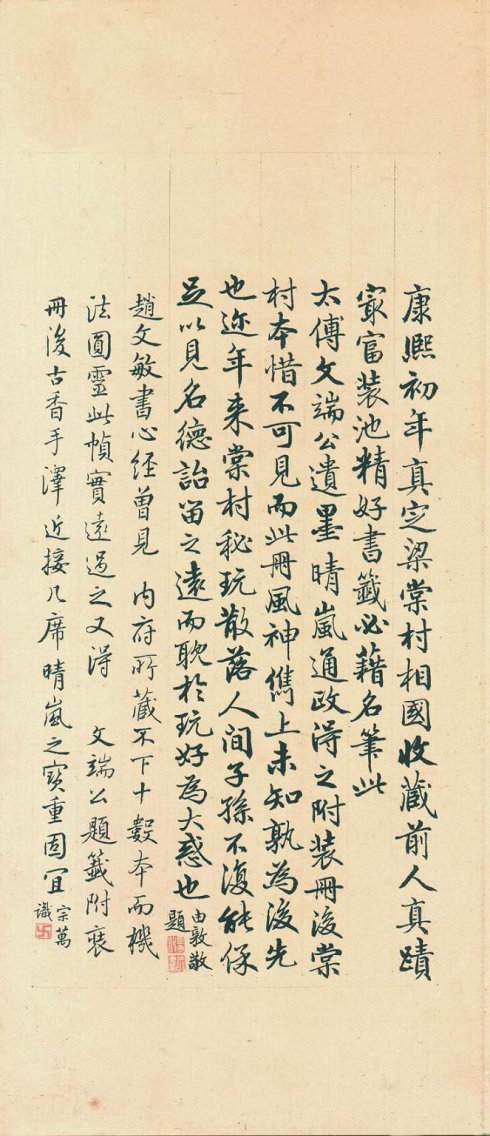 康熙初年真定梁棠村相國收藏前人真蹟
冣富装池精好書籤必藉名筆此
太傅文端公遺墨晴嵐通政淂之附装冊後棠
村本惜不可見而此冊風神儁上未知孰為後先
也迩年来棠村秘玩散落人间子孫不復能保
足以見名德詒留之遠而耽於玩好為大惑也
由敦敬
題
趙文敏書心经曽見 内府所藏不下十數本而機
法圓靈此幀實遠過之又淂 文端公題籤附裝
冊後古香手澤近接几席晴嵐之寳重固宜
宗萬
識